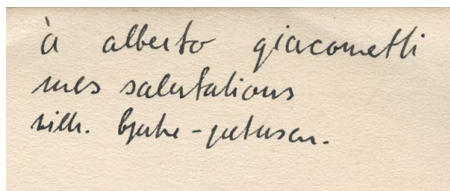 à alberto giacometti
mes salutations
vilh. bjerke-petersen.